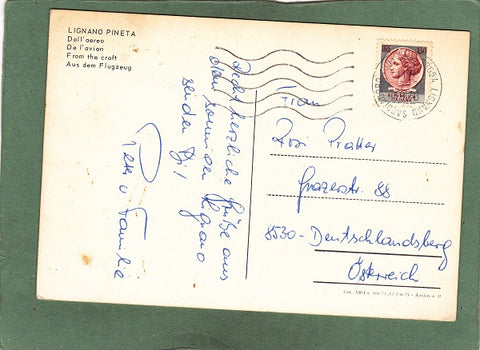 LIGNANO PINETA
Dall'aereo
De l'avion
From the craft
Aus dem Flugzeug
Recht herzliche Grüße aus
dem sonnigen Lignano
senden Dir
Peter u Familie
Frau
Rosi Pratter
Grazerstr. 88
8530-Deutschlandsberg
Österreich